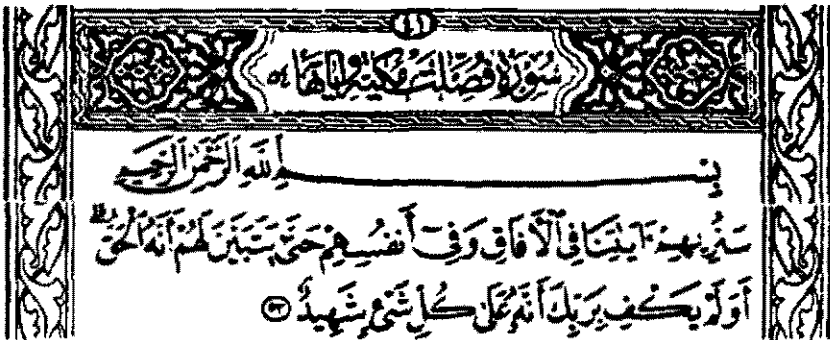 ٤١
سُورَةُ فُصِّلَتْ مَكِّيَّة وَآيَاتُهَا ٥٤
بِسْمِ اللَّهِ الرَّحْمَٰنِ الرَّحِيمِ
سَنُرِيهِمْ ءَايَٰتِنَا فِي ٱلْآفَاقِ وَفِىٓ أَنفُسِهِمْ حَتَّىٰ يَتَبَيَّنَ لَهُمْ أَنَّهُ ٱلْحَقُّ ۗ
أَوَلَمْ يَكْفِ بِرَبِّكَ أَنَّهُۥ عَلَىٰ كُلِّ شَىْءٍ شَهِيدٌ ٥٣